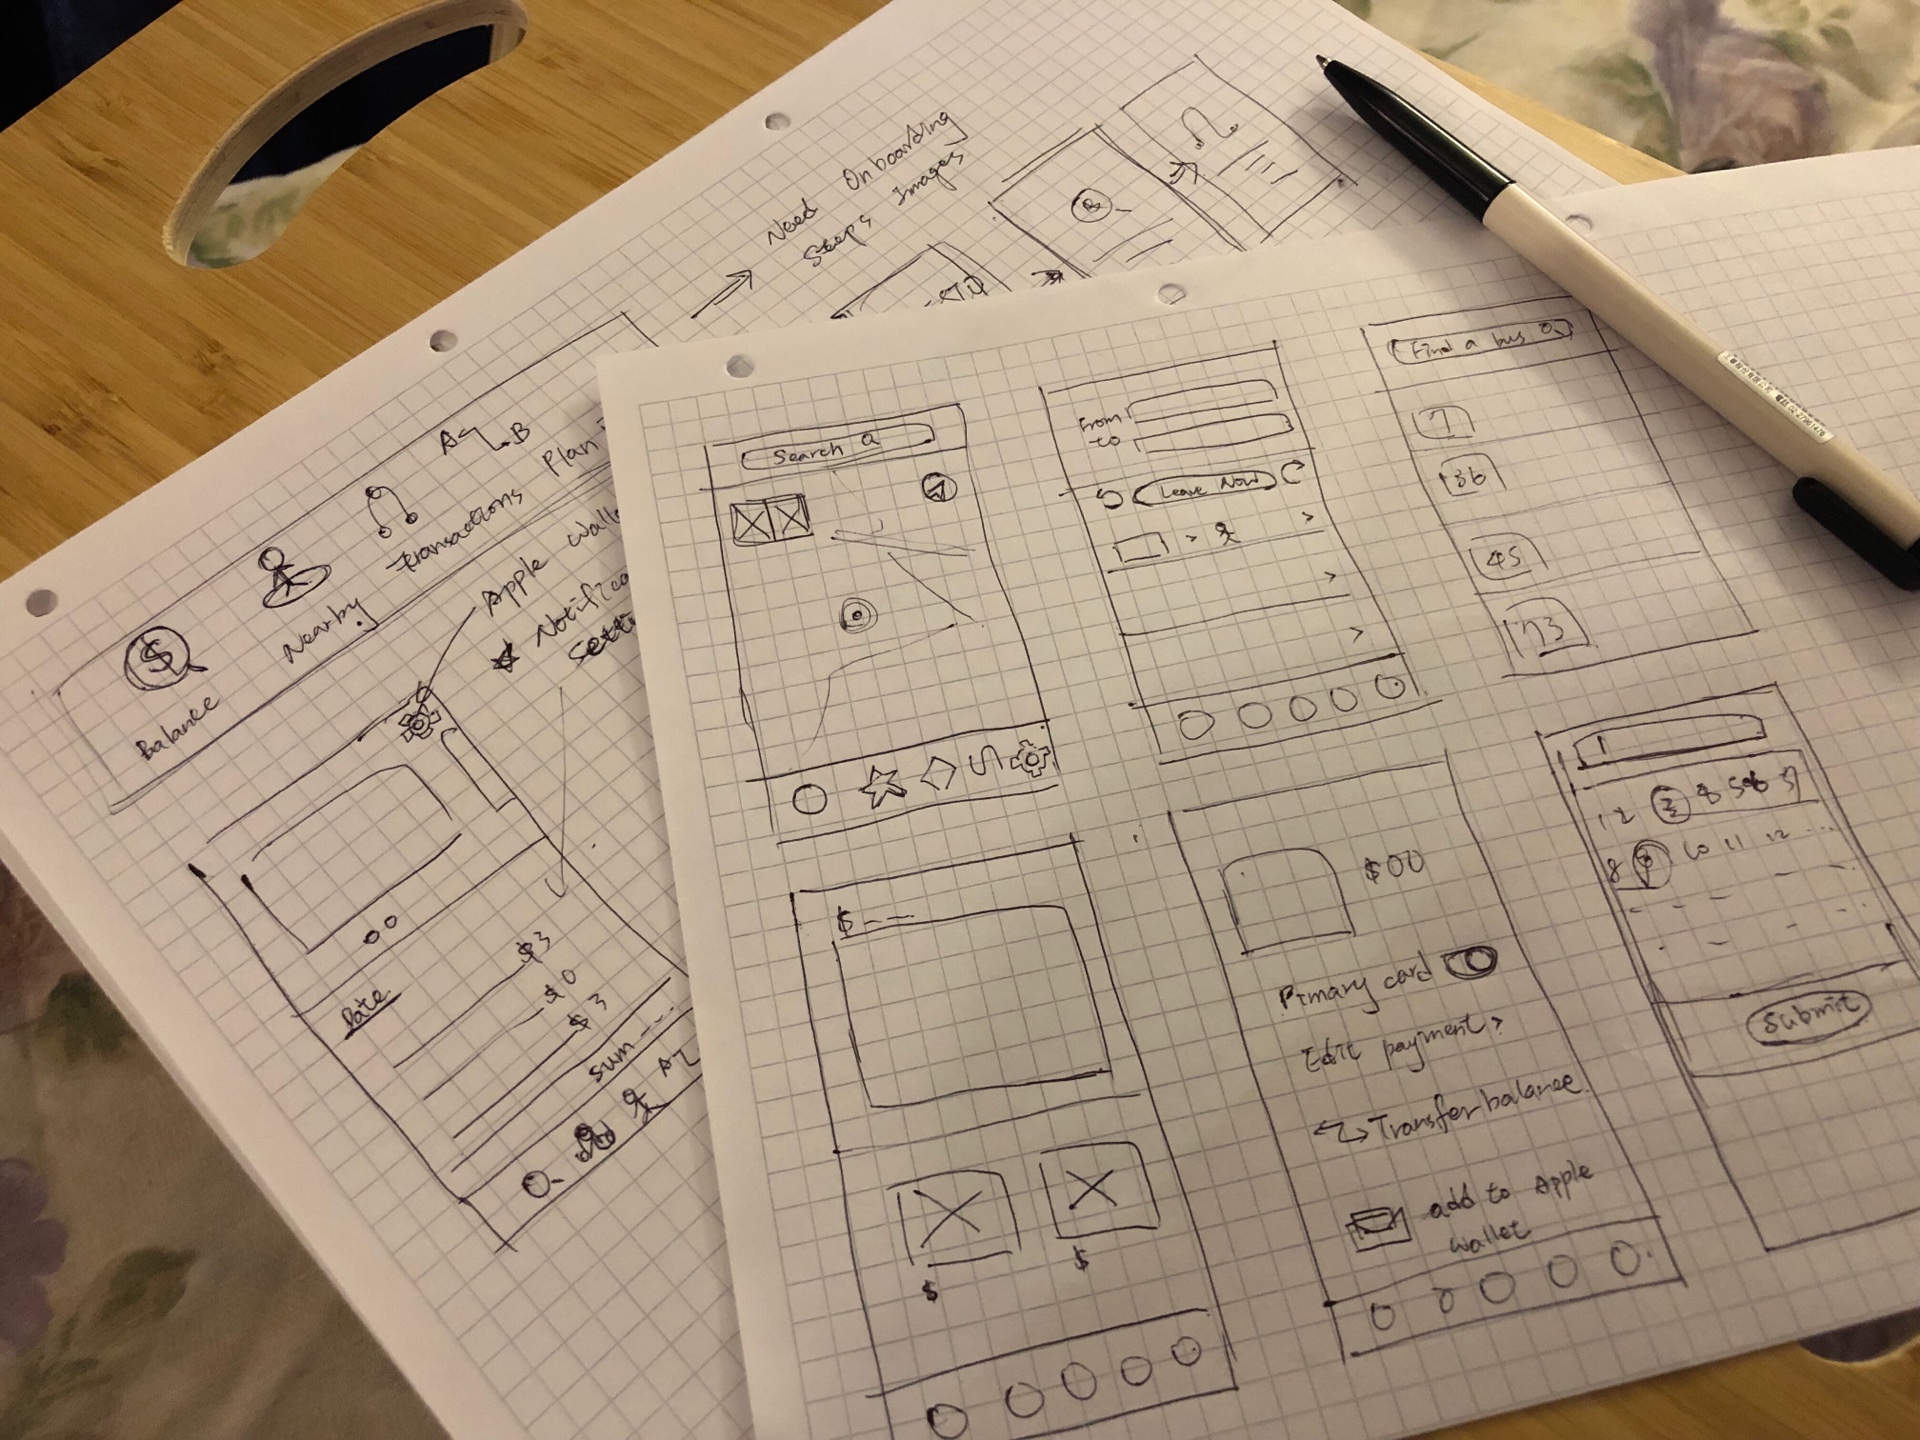 Need Onboarding
Steps Images
A B
Plan
Transactions
Nearby
$
Balance
Apple Wall
Notifica
Sett
Date
$3
$0
$3
Sum---
Search
From
to
Leave Now
Find a bus
7
36
45
73
$--
$
$
$00
Primary card
Edit payment >
Transfer balance
add to Apple
wallet
1 2 3
8 9 10 11 12 ...
Submit